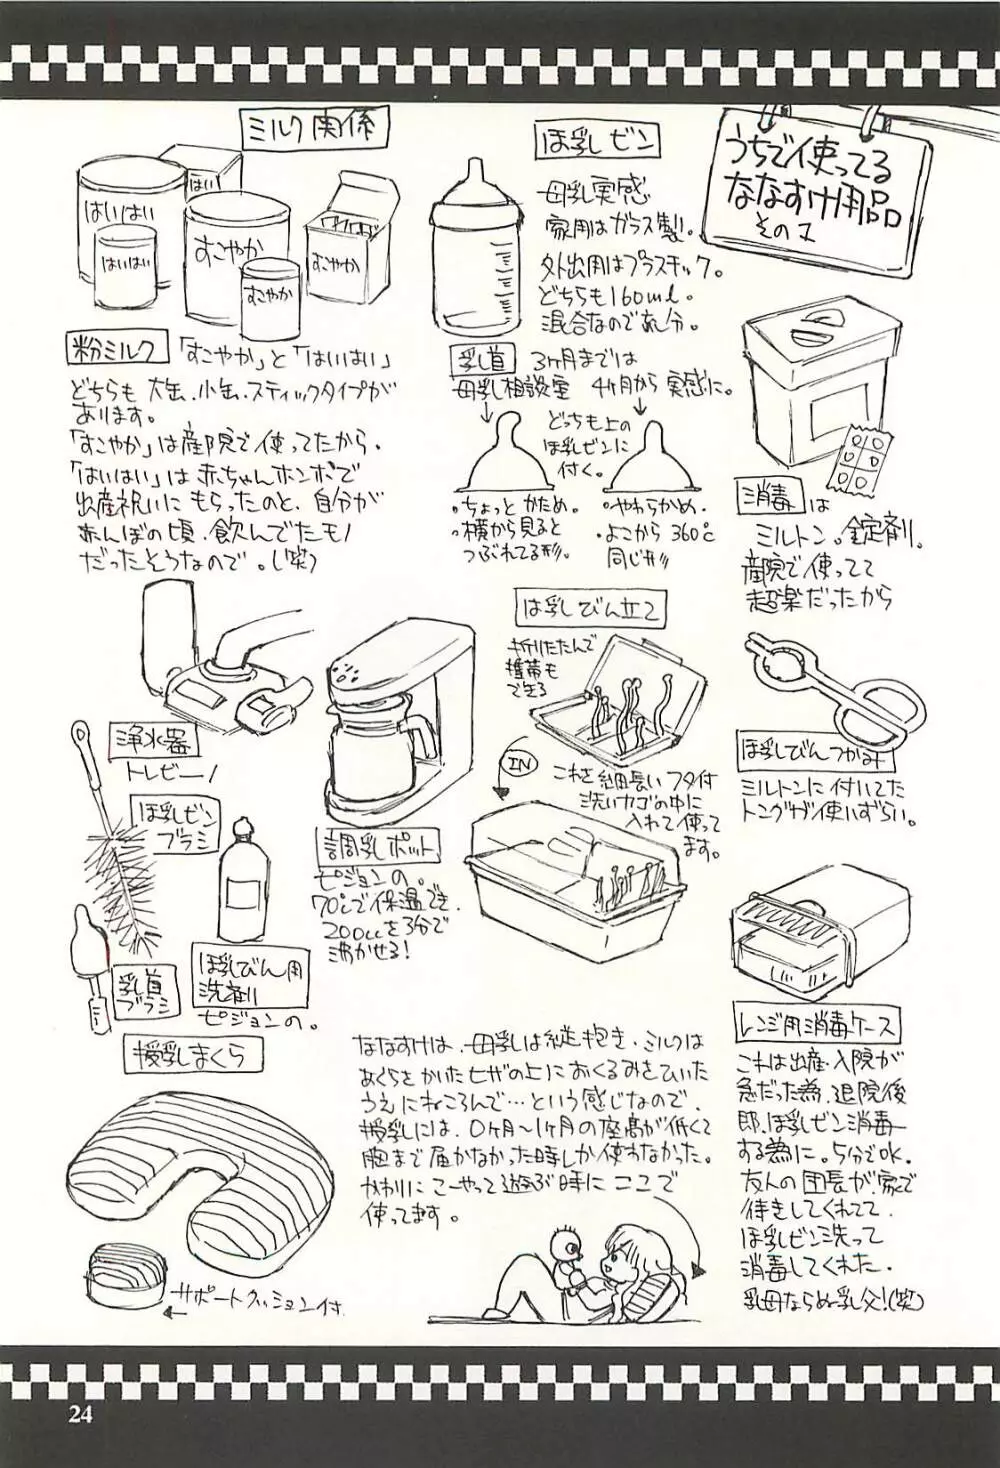 うちで使ってる
ななすけ用品
その1
ミルク関係
はいはい
はい
はいはい
すこやか
すこやか
すこやか
粉ミルク
「すこやか」と「はいはい」
どちらも大缶、小缶、スティックタイプが
あります。
「すこやか」は産院で使ってたから。
「はいはい」は赤ちゃんホンポで
出産祝いにもらったのと、自分が
赤んぼの頃、飲んでたモノ
だったそうなので。(笑)
ほ乳ビン
母乳実感
家用はガラス製。
外出用はプラスチック。
どちらも160ml。
混合なので
乳首
3ヶ月までは
母乳相談室
4ヶ月から実感に。
どっちも上の
ほ乳ビンに
付く。
・ちょっとかため。
・横から見ると
つぶれてる形。
・やわらかめ。
・よこから360℃
同じ形
消毒は
ミルトン。錠剤。
産院で使ってて
超楽だったから
ほ乳びんつかみ
ミルトンに付いてた
トングが使いずらい。
ほ乳びん立て
折りたたんで
携帯も
できる
IN
これを細長いフタ付
洗いカゴの中に
入れて使って
ます。
浄水器
トレビーノ
ほ乳ビン
ブラシ
乳首
ブラシ
ほ乳びん用
洗剤
ピジョンの。
調乳ポット
ピジョンの。
70℃で保温でき、
200ccを3分で
沸かせる!
レンジ用消毒ケース
これは出産・入院が
急だった為、退院後
即、ほ乳ビン消毒
する為に。5分でOK。
友人の団長が、家で
待きしてくれてて、
ほ乳ビン洗って
消毒してくれた。
乳母ならぬ乳父!(笑)
授乳まくら
サポートクッション付
ななすけは、母乳は縦抱き、ミルクは
あぐらをかいたヒザの上におくるみをひいた
うえにねころんで…という感じなので、
授乳には、0ヶ月〜1ヶ月の座高が低くて
胸まで届かなかった時しか使わなかった。
かわりにこーやって遊ぶ時にここで
使ってます。
24